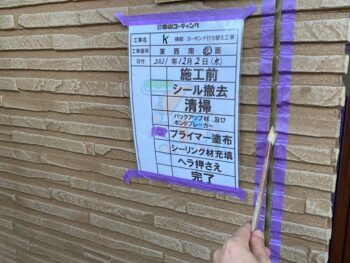 中山コーティング
工事名 K 様邸 コーキング打ち替え工事
工事箇所 東 西 南 北 面
日付 2021年12月2日(木)
施工前
シール撤去
清掃
バックアップ材 及び
ボンドブレーカー
プライマー塗布
シーリング材充填
ヘラ押さえ
完了